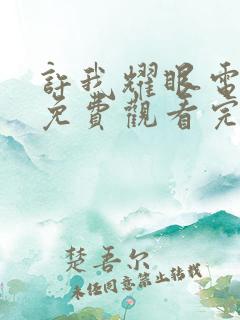 許我耀眼電
免費觀看完
楚吾尔
未经同意禁止转载